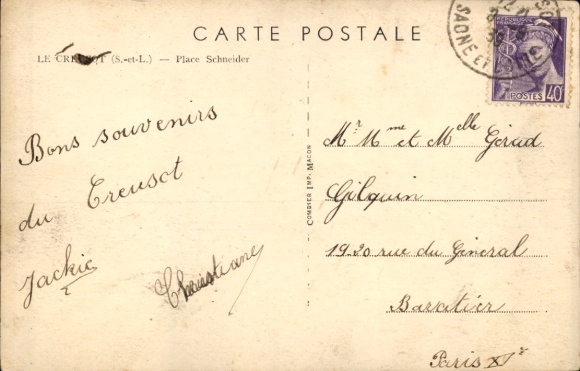 CARTE POSTALE
LE CREUSOT (S.-et-L.) — Place Schneider
Bons souvenirs
du Creusot
Jackie
Christiane
COMBIER IMP. MACON
Mr Mme et Melle Gérad
Gilquin
19-20 rue du Général
Baratier
Paris XVe
REPUBLIQUE FRANÇAISE
POSTES 40c
SAONE ET LOIRE